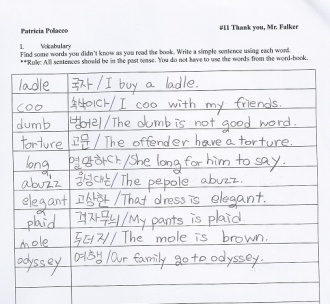 Patricia Polacco #11 Thank you, Mr. Falker
I. Vocabulary
Find some words you didn't know as you read the book. Write a simple sentence using each word.
**Rule: All sentences should be in the past tense. You do not have to use the words from the word-book.
ladle 국자 / I buy a ladle.
coo 속삭이다 / I coo with my friends.
dumb 벙어리 / The dumb is not good word.
torture 고문 / The offender have a torture.
long 열망하다 / She long for him to say.
abuzz 웅성대는 / The pepole abuzz.
elegant 고상한 / That dress is elegant.
plaid 격자무늬 / My pants is plaid.
mole 두더지 / The mole is brown.
odyssey 여행 / Our family go to odyssey.